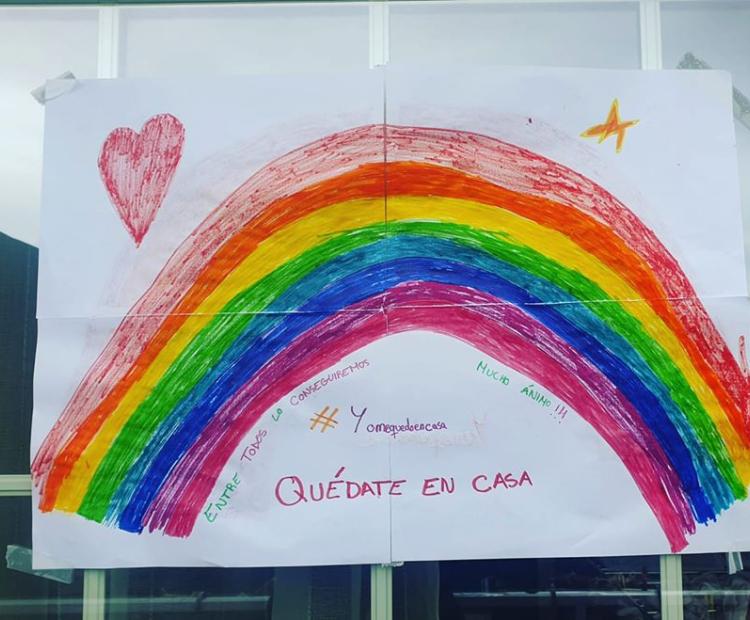 ENTRE TODOS LO CONSEGUIREMOS
MUCHO ÁNIMO!!!
# Yomequedoencasa
QUÉDATE EN CASA